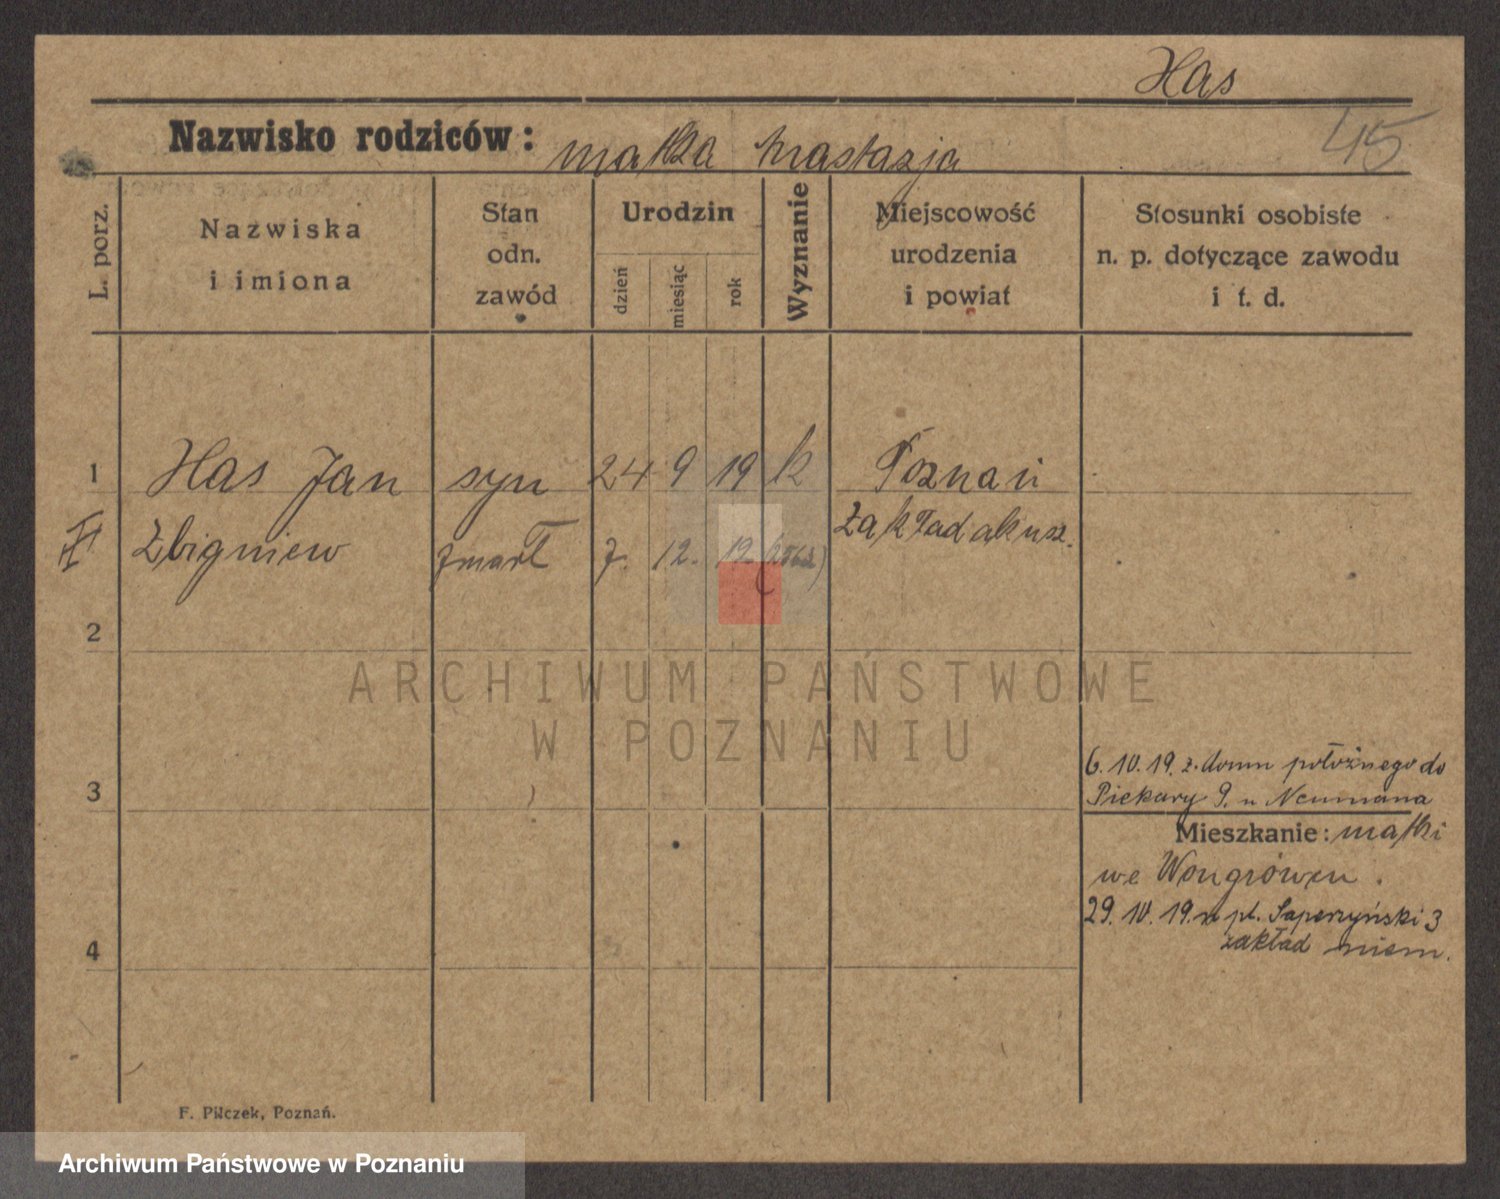 Has
45
Nazwisko rodziców: matka Nastazja
L. porz.
Nazwiska
i imiona
Stan
odn.
zawód
Urodzin
dzień
miesiąc
rok
Wyznanie
Miejscowość
urodzenia
i powiat
Stosunki osobiste
n. p. dotyczące zawodu
i t. d.
1 Has Jan syn 24 9 19 k Poznań
Zbigniew zmarł 7. 12. 19 Zakład akusz.
2
ARCHIWUM PAŃSTWOWE
W POZNANIU
6.10.19. z domu położnego do
3 Piekary 9. u Neumana
Mieszkanie: matki
we Wongrówcu.
29.10.19. pl. Saperzyński 3
4 zakład niem.
F. Pilczek, Poznań.
Archiwum Państwowe w Poznaniu